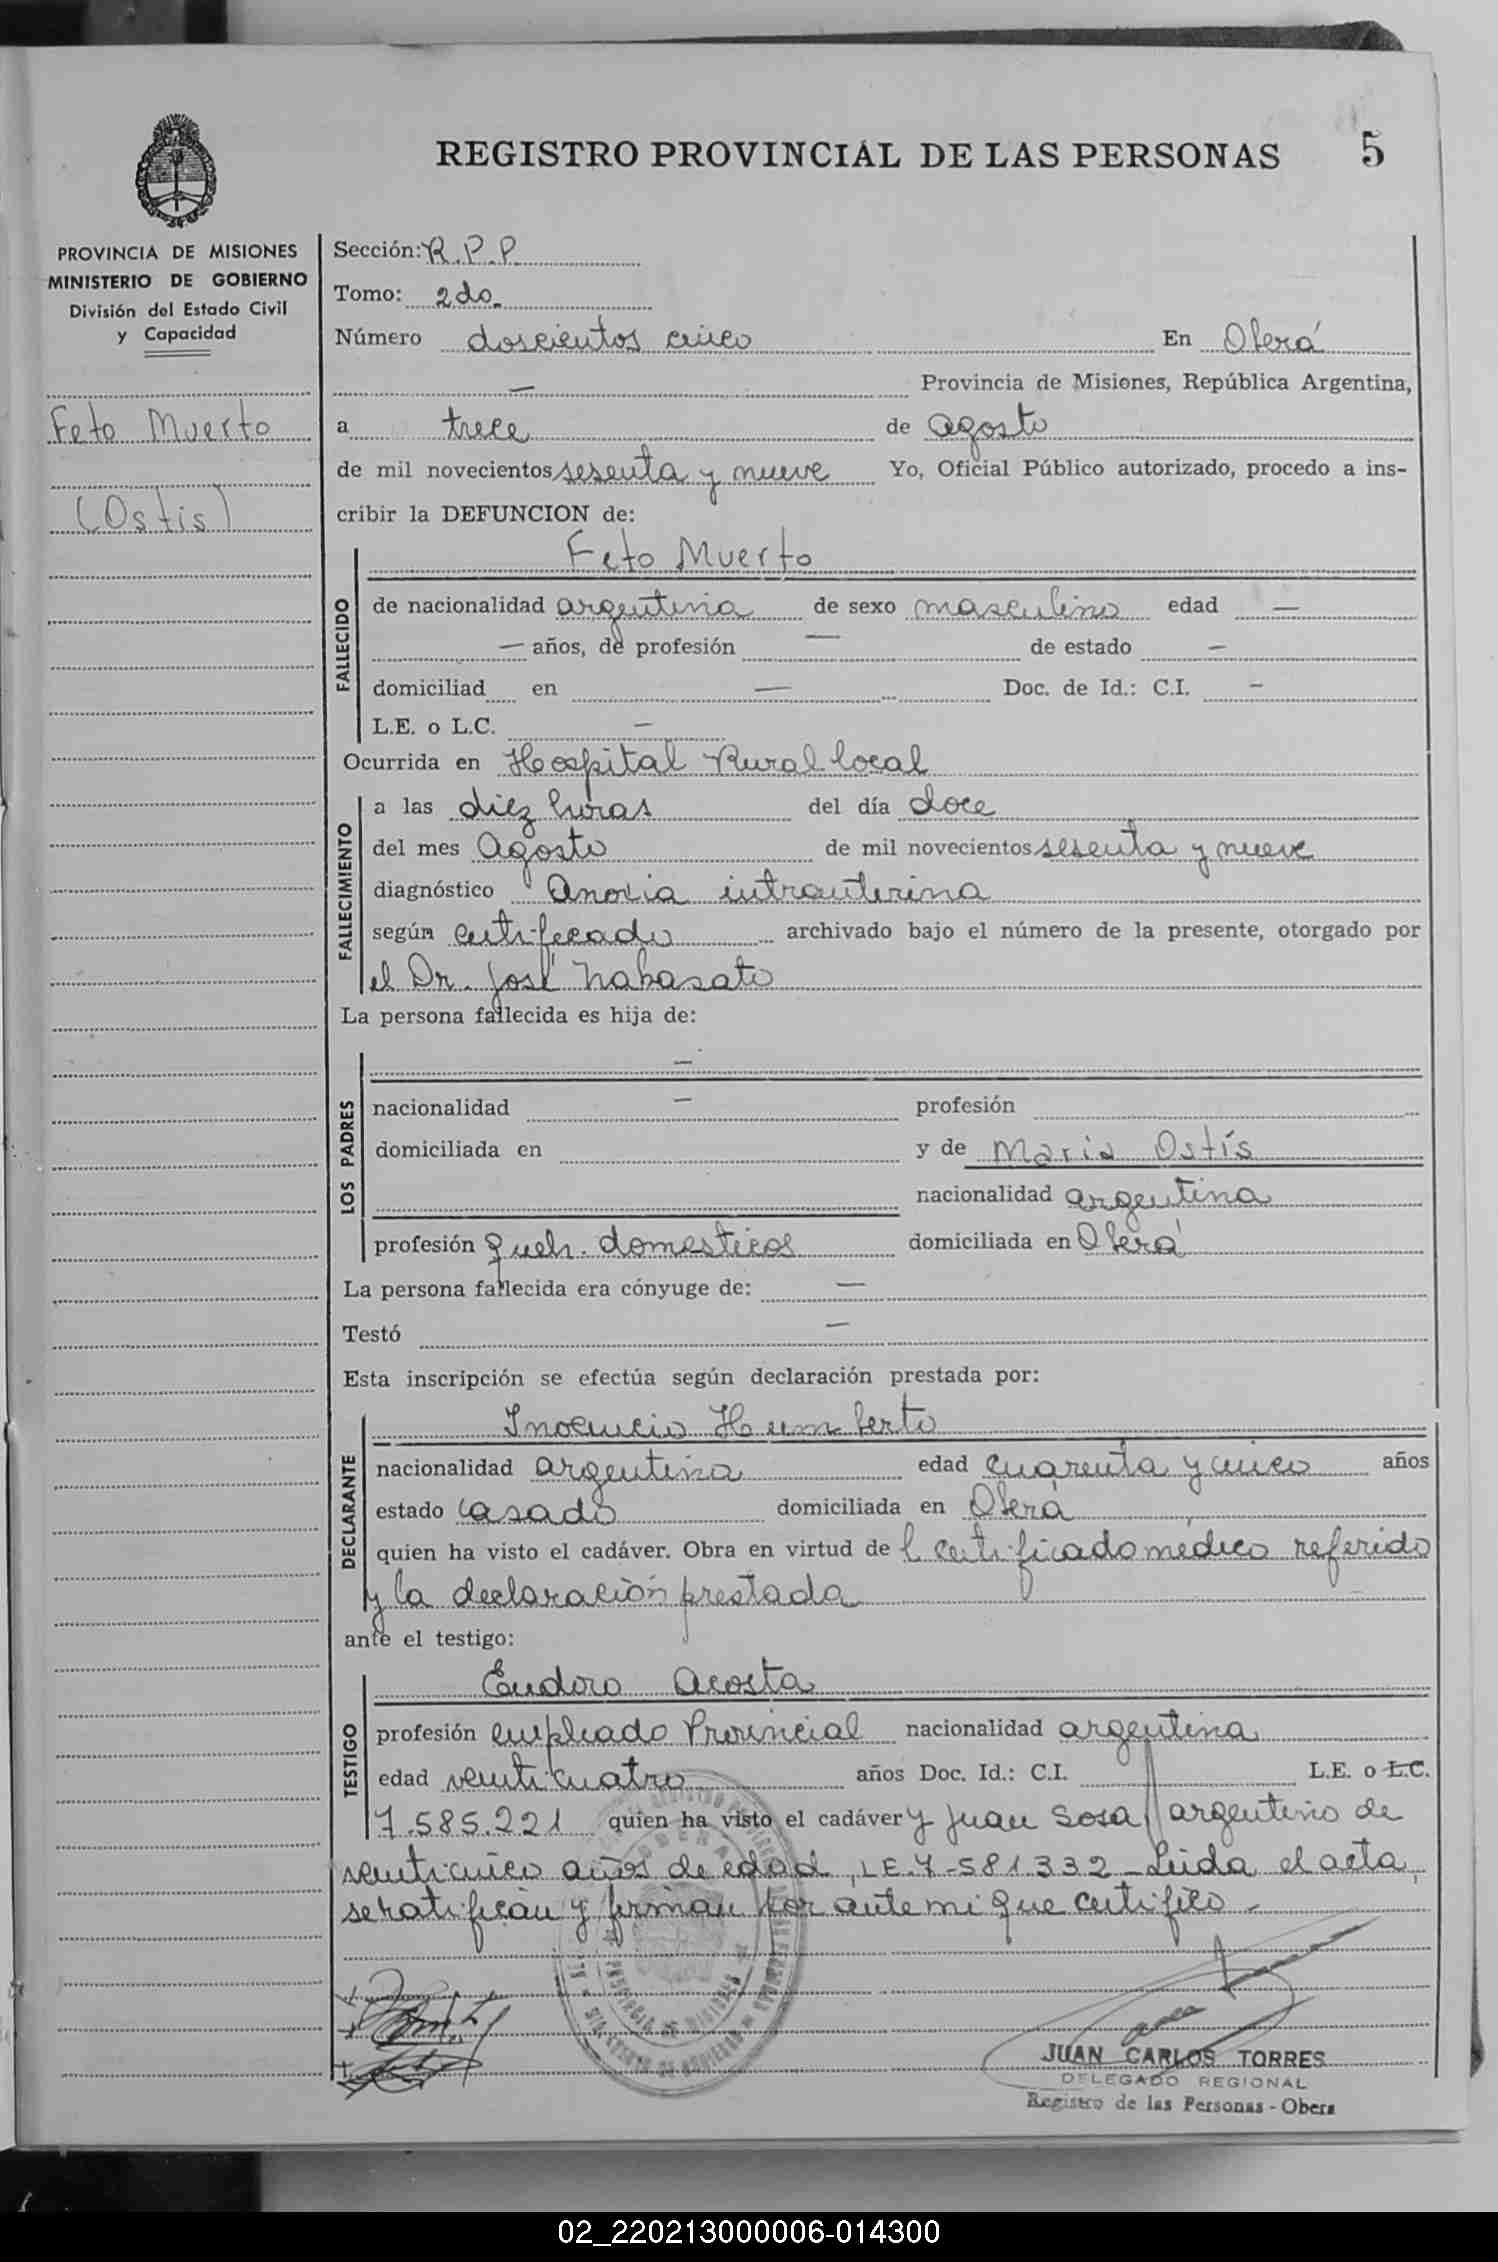 REGISTRO PROVINCIAL DE LAS PERSONAS 5
PROVINCIA DE MISIONES
MINISTERIO DE GOBIERNO
División del Estado Civil
y Capacidad
Feto Muerto
(Ostis)
Sección: R.P.P.
Tomo: 2do.
Número doscientos cinco En Oberá
— Provincia de Misiones, República Argentina,
a trece de agosto
de mil novecientos sesenta y nueve Yo, Oficial Público autorizado, procedo a ins-
cribir la DEFUNCION de:
Feto Muerto
FALLECIDO
de nacionalidad argentina de sexo masculino edad —
— años, de profesión — de estado —
domiciliad en — Doc. de Id.: C.I. —
L.E. o L.C. —
Ocurrida en Hospital Rural local
FALLECIMIENTO
a las diez horas del día doce
del mes Agosto de mil novecientos sesenta y nueve
diagnóstico Anoxia intrauterina
según certificado archivado bajo el número de la presente, otorgado por
el Dr. José Nakasato
La persona fallecida es hija de:
LOS PADRES
—
nacionalidad — profesión
domiciliada en y de Maria Ostís
nacionalidad argentina
profesión queh. domesticos domiciliada en Oberá
La persona fallecida era cónyuge de: —
Testó —
Esta inscripción se efectúa según declaración prestada por:
DECLARANTE
Inocencio Humberto
nacionalidad argentina edad cuarenta y cinco años
estado casado domiciliada en Oberá
quien ha visto el cadáver. Obra en virtud de l certificado médico referido
y la declaración prestada
ante el testigo:
TESTIGO
Eudoro Acosta
profesión empleado Provincial nacionalidad argentina
edad venticuatro años Doc. Id.: C.I. L.E. o L.C.
7.585.221 quien ha visto el cadáver y Juan Sosa, argentino de
venticinco años de edad, L.E.7.581.332 - Leida el acta,
se ratifican y firman por ante mi que certifico -
JUAN CARLOS TORRES
DELEGADO REGIONAL
Registro de las Personas - Obera
02_220213000006-014300